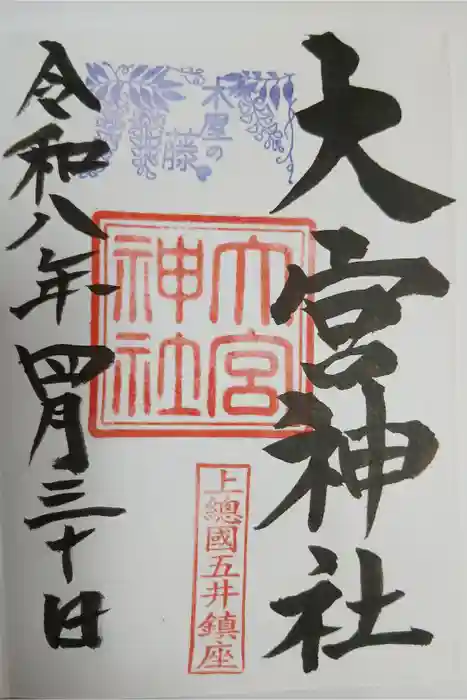 大宮神社
木屋の
藤
大宮
神社
上總國五井鎮座
令和八年四月三十日